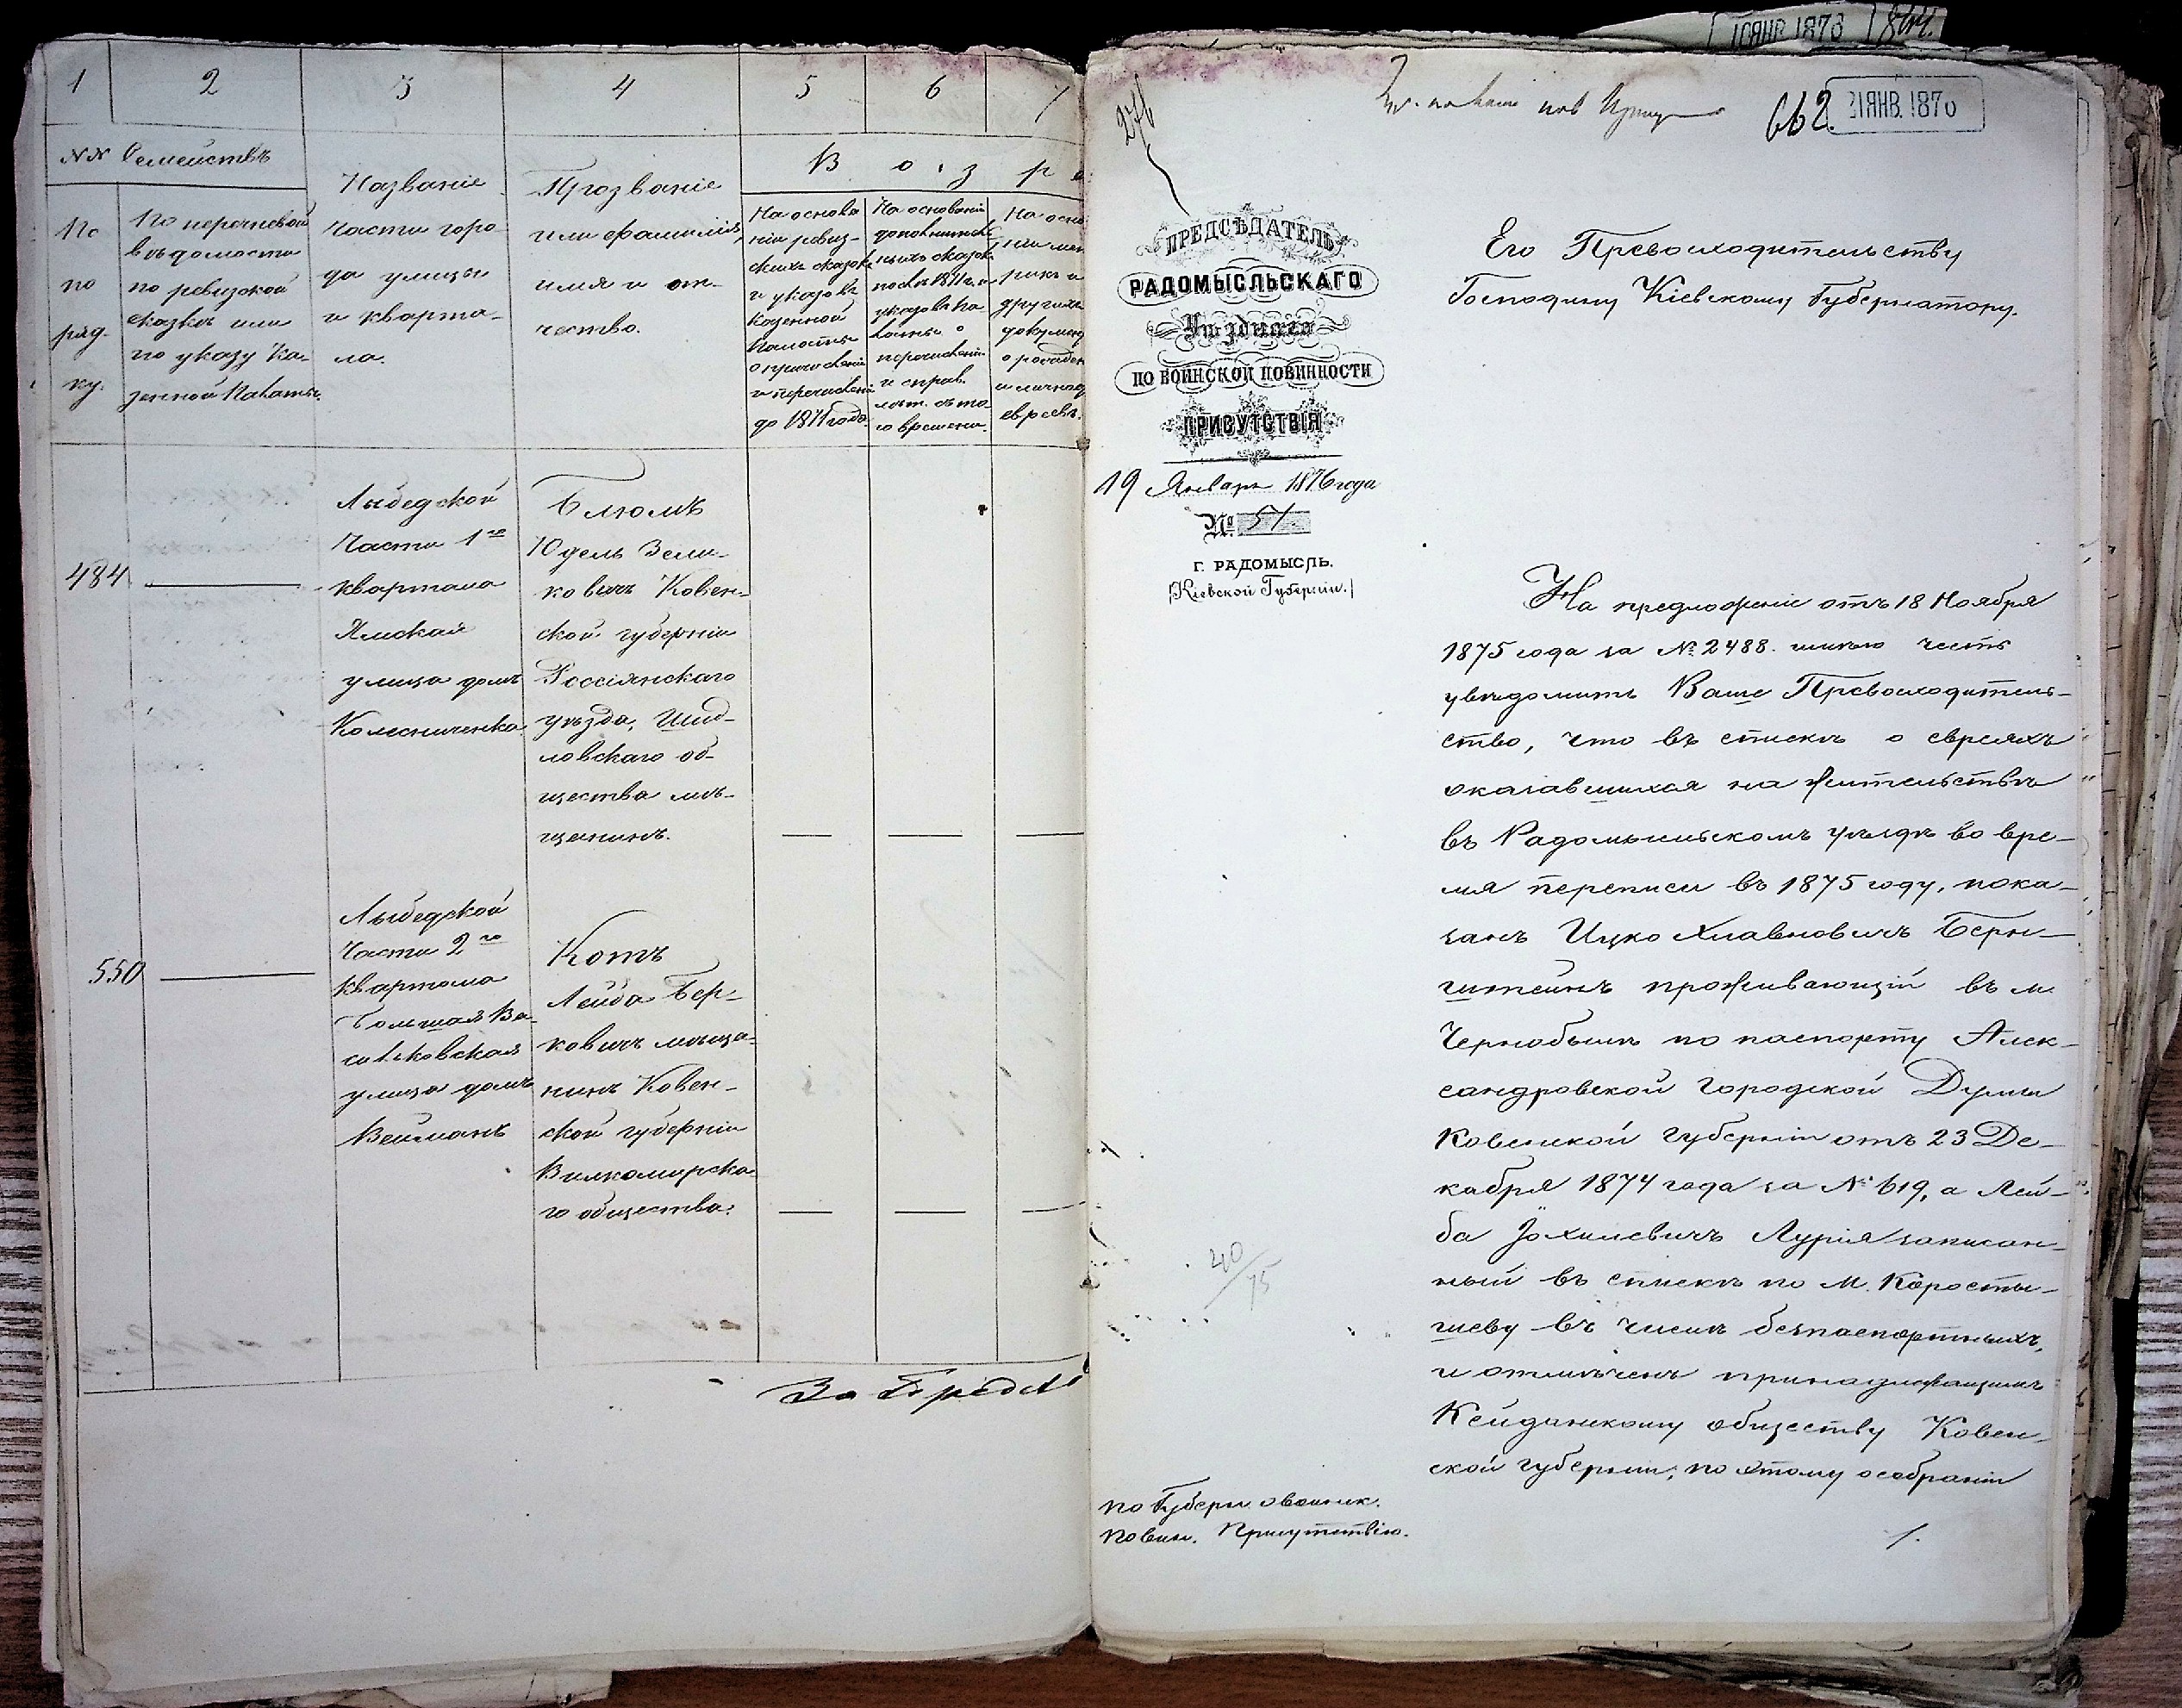 1
2
3
4
5
6
7
№№ Семействъ
По
по
ряд-
ку.
По перечневой
вѣдомости
по ревизской
сказкѣ или
по указу Ка-
зенной Палаты.
Названіе
части горо-
да улицы
и кварта-
ла.
Прозваніе
или фамилія,
имя и от-
чество.
В о з р а
На основа
ніи ревиз-
скихъ сказокъ
и указовъ
Казенной
Палаты
о причисленіи
и перечисленіи
до 1871 года
На основаніи
дополнитель
ныхъ сказокъ
послѣ 1871 г. и
указовъ Па
латы о
перечисленіи
и справ.
лѣт. съ то
го времени.
На осно
ніи мет
рикъ и
другихъ
докумен
о рожден
и личнаго
евреевъ.
484
Лыбедской
Части 1го
квартала
Ямская
улица домъ
Колесниченка
Блюмъ
Юдель Зели-
ковичъ Ковен-
ской губерніи
Россіянскаго
уѣзда, Шид-
ловскаго об-
щества мѣ-
щанинъ.
550
Лыбедской
Части 2го
квартала
Большая Ва-
сильковская
улица домъ
Вейсманъ
Котъ
Лейба Бер-
ковичъ мѣща-
нинъ Ковен-
ской губерніи
Вилкомирска-
го общества.
За
10 ЯНВ 1876
276
662.
21 ЯНВ. 1876
ПРЕДСѢДАТЕЛЬ
РАДОМЫСЛЬСКАГО
Уѣзднаго
ПО ВОИНСКОЙ ПОВИННОСТИ
ПРИСУТСТВІЯ
19 Января 1876 года
№ 51.
Г. РАДОМЫСЛЬ.
[Кіевской Губерніи.]
Его Превосходительству
Господину Кіевскому Губернатору.
На предложеніе отъ 18 Ноября
1875 года за № 2488. имѣю честь
увѣдомить Ваше Превосходитель-
ство, что въ спискѣ о евреяхъ
оказавшихся на жительствѣ
въ Радомысльскомъ уѣздѣ во вре-
мя переписи въ 1875 году, пока-
занъ Ицко Хлавновичъ Берн-
штейнъ проживающій въ м.
Чернобылѣ по паспорту Алек-
сандровской Городской Думы
Ковенской губерніи отъ 23 Де-
кабря 1874 года за № 619, а Лей-
ба Іохилевичъ Лурія записан-
ный въ спискѣ по м. Коросты-
шеву въ числѣ безпаспортныхъ,
и отмѣченъ принадлежащимъ
Кейданскому обществу Ковен-
ской губерніи, по этому о собраніи
40/75
по Губерн. о воинск.
повин. Присутствію.
1.